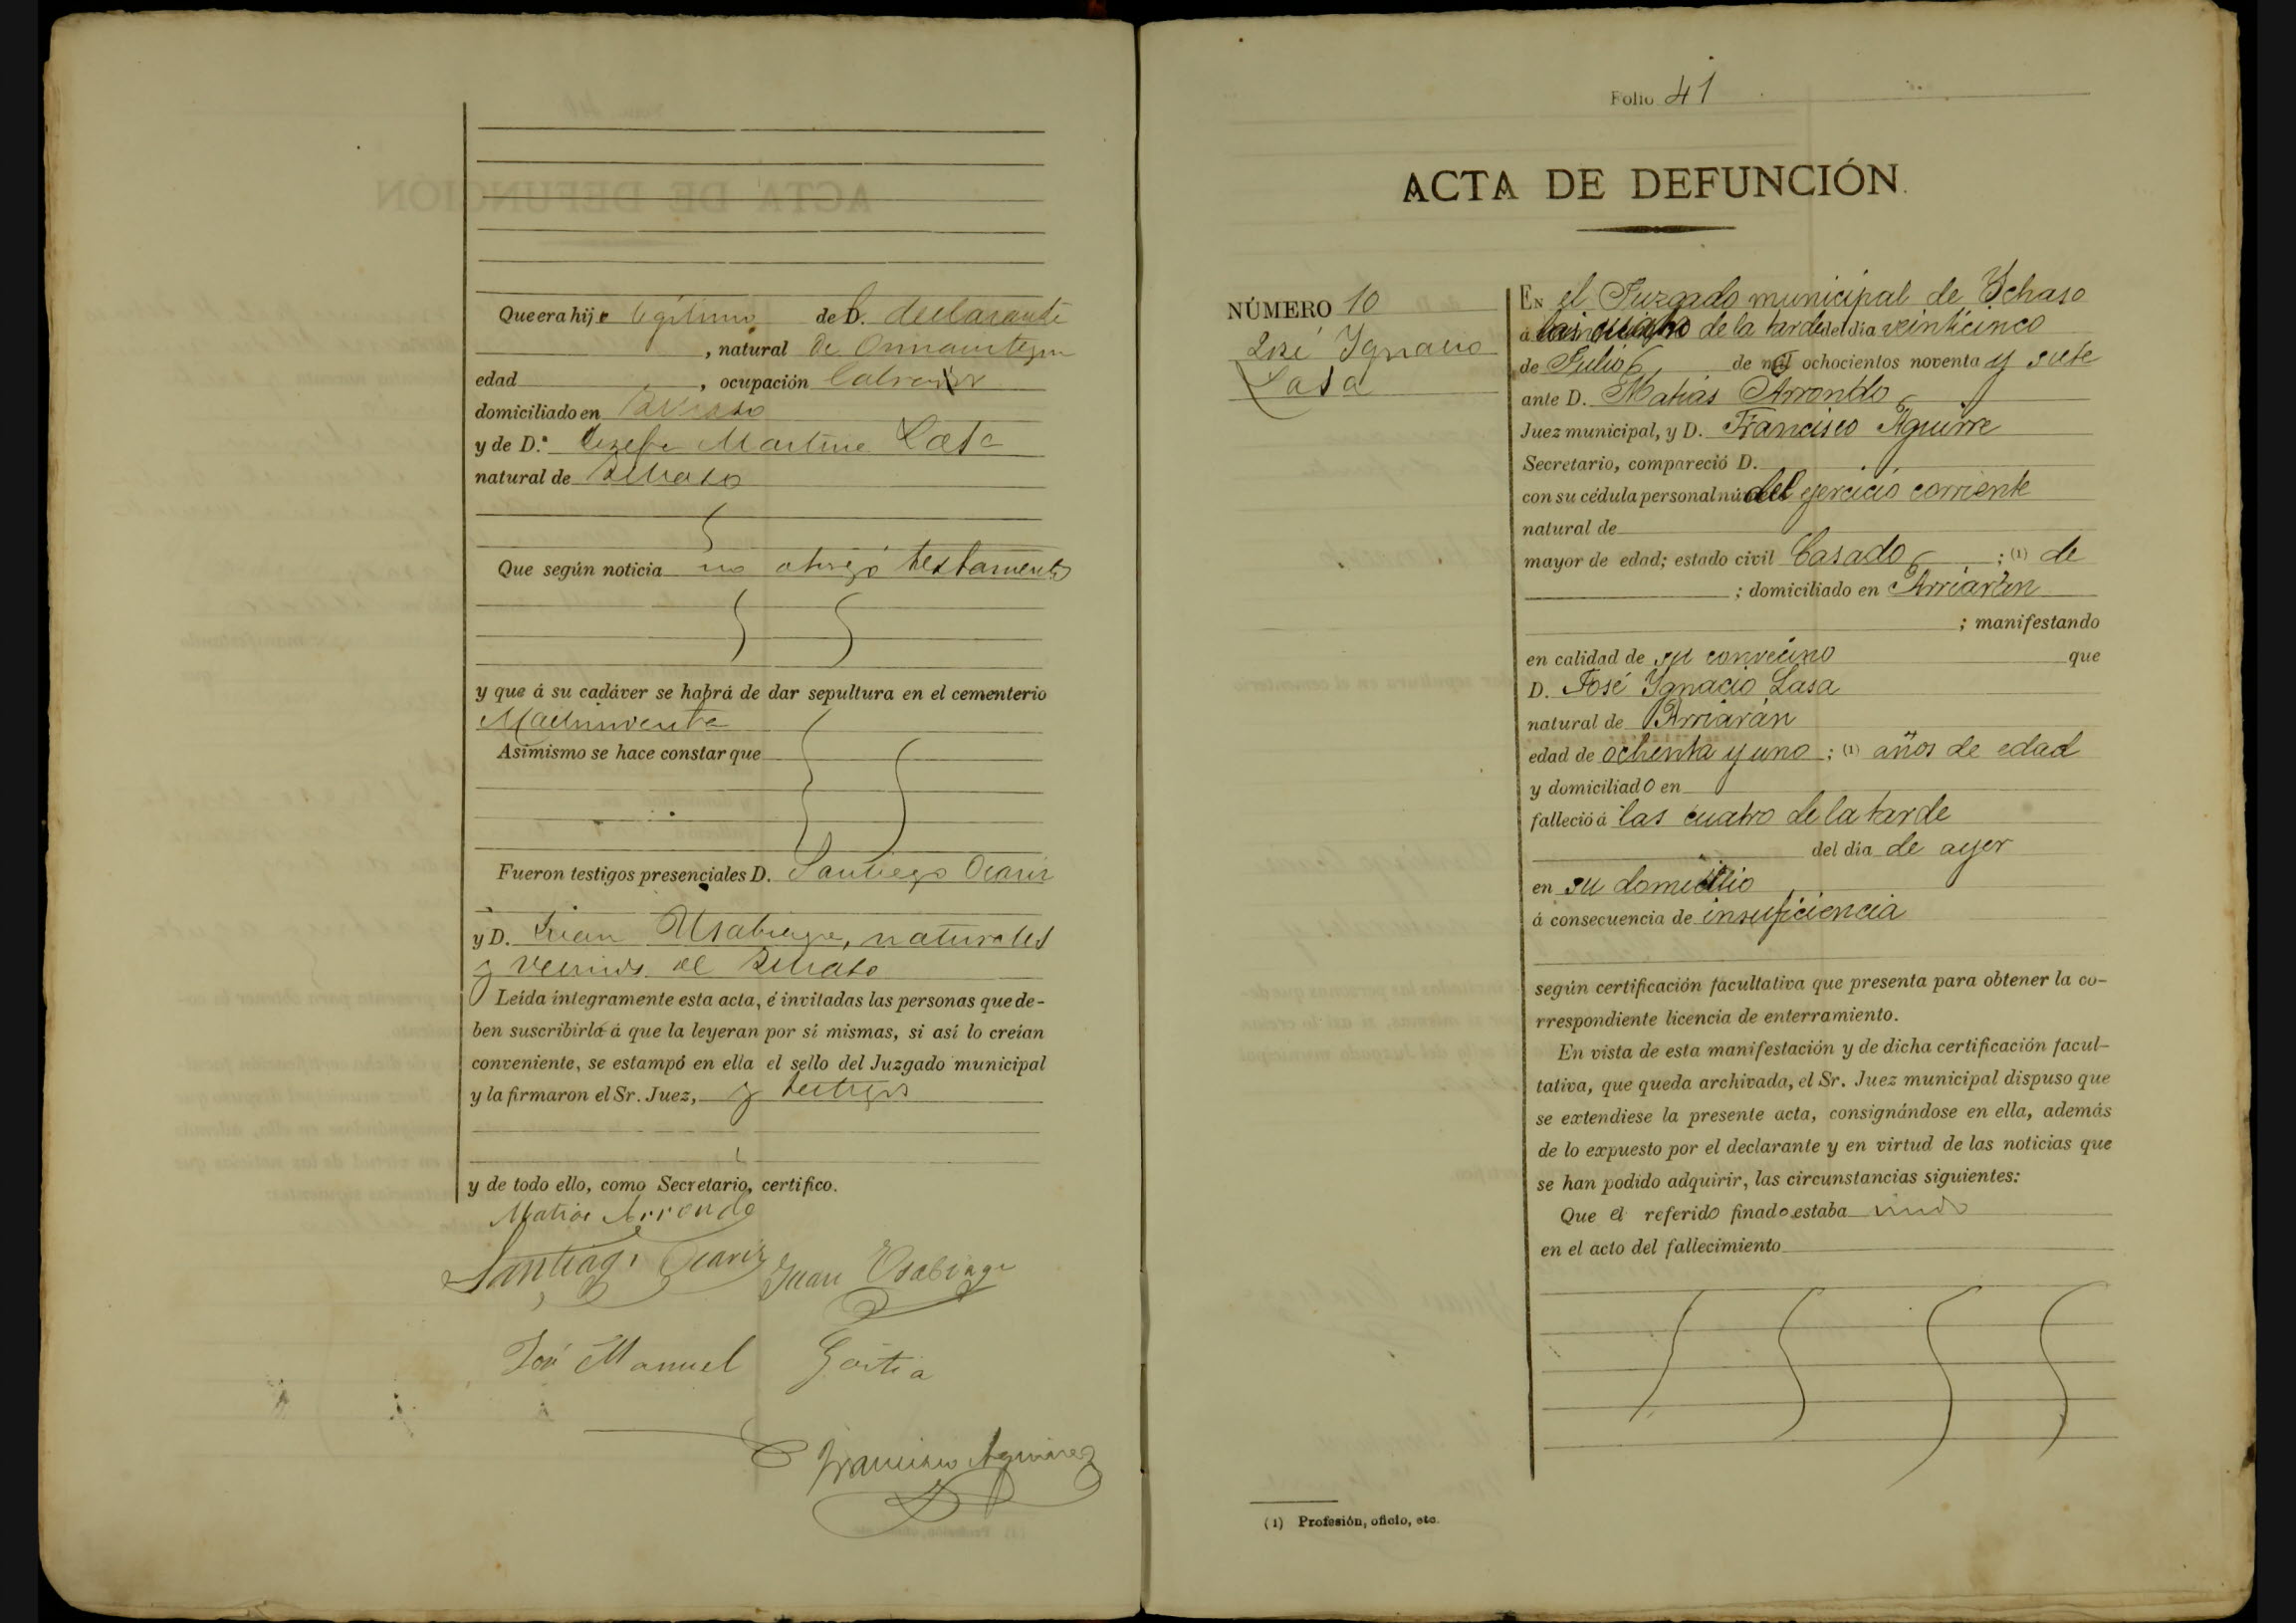 Que era hijo legítimo de D. declarante
, natural de Ormaiztegui
edad , ocupación labrador
domiciliado en
y de D.ª Josefa Martina Lasa
natural de Ichaso
Que según noticia no otorgó testamento
y que á su cadáver se habrá de dar sepultura en el cementerio
Asimismo se hace constar que
Fueron testigos presenciales D. Santiago Ocariz
y D. Juan Usabiaga, naturales
y vecinos de Ichaso
Leída íntegramente esta acta, é invitadas las personas que de-
ben suscribirla á que la leyeran por sí mismas, si así lo creían
conveniente, se estampó en ella el sello del Juzgado municipal
y la firmaron el Sr. Juez, y testigos
y de todo ello, como Secretario, certifico.
Matias Arrondo
Santiago Ocariz Juan Usabiaga
José Manuel Goitia
Francisco Aguirre
Folio 41
ACTA DE DEFUNCIÓN.
NÚMERO 10
José Ignacio
Lasa
EN el Juzgado municipal de Ychaso
á las cuatro de la tarde del dia veinticinco
de Julio de mil ochocientos noventa y siete
ante D. Matías Arrondo
Juez municipal, y D. Francisco Aguirre
Secretario, compareció D.
con su cédula personal nú del ejercicio corriente
natural de
mayor de edad; estado civil Casado ; (1) de
; domiciliado en Arriarán
; manifestando
en calidad de su convecino que
D. José Ygnacio Lasa
natural de Arriarán
edad de ochenta y uno ; (1) años de edad
y domiciliado en
falleció á las cuatro de la tarde
del dia de ayer
en su domicilio
á consecuencia de insuficiencia
según certificación facultativa que presenta para obtener la co-
rrespondiente licencia de enterramiento.
En vista de esta manifestación y de dicha certificación facul-
tativa, que queda archivada, el Sr. Juez municipal dispuso que
se extendiese la presente acta, consignándose en ella, además
de lo expuesto por el declarante y en virtud de las noticias que
se han podido adquirir, las circunstancias siguientes:
Que el referido finado estaba viudo
en el acto del fallecimiento
(1) Profesión, oficio, etc.